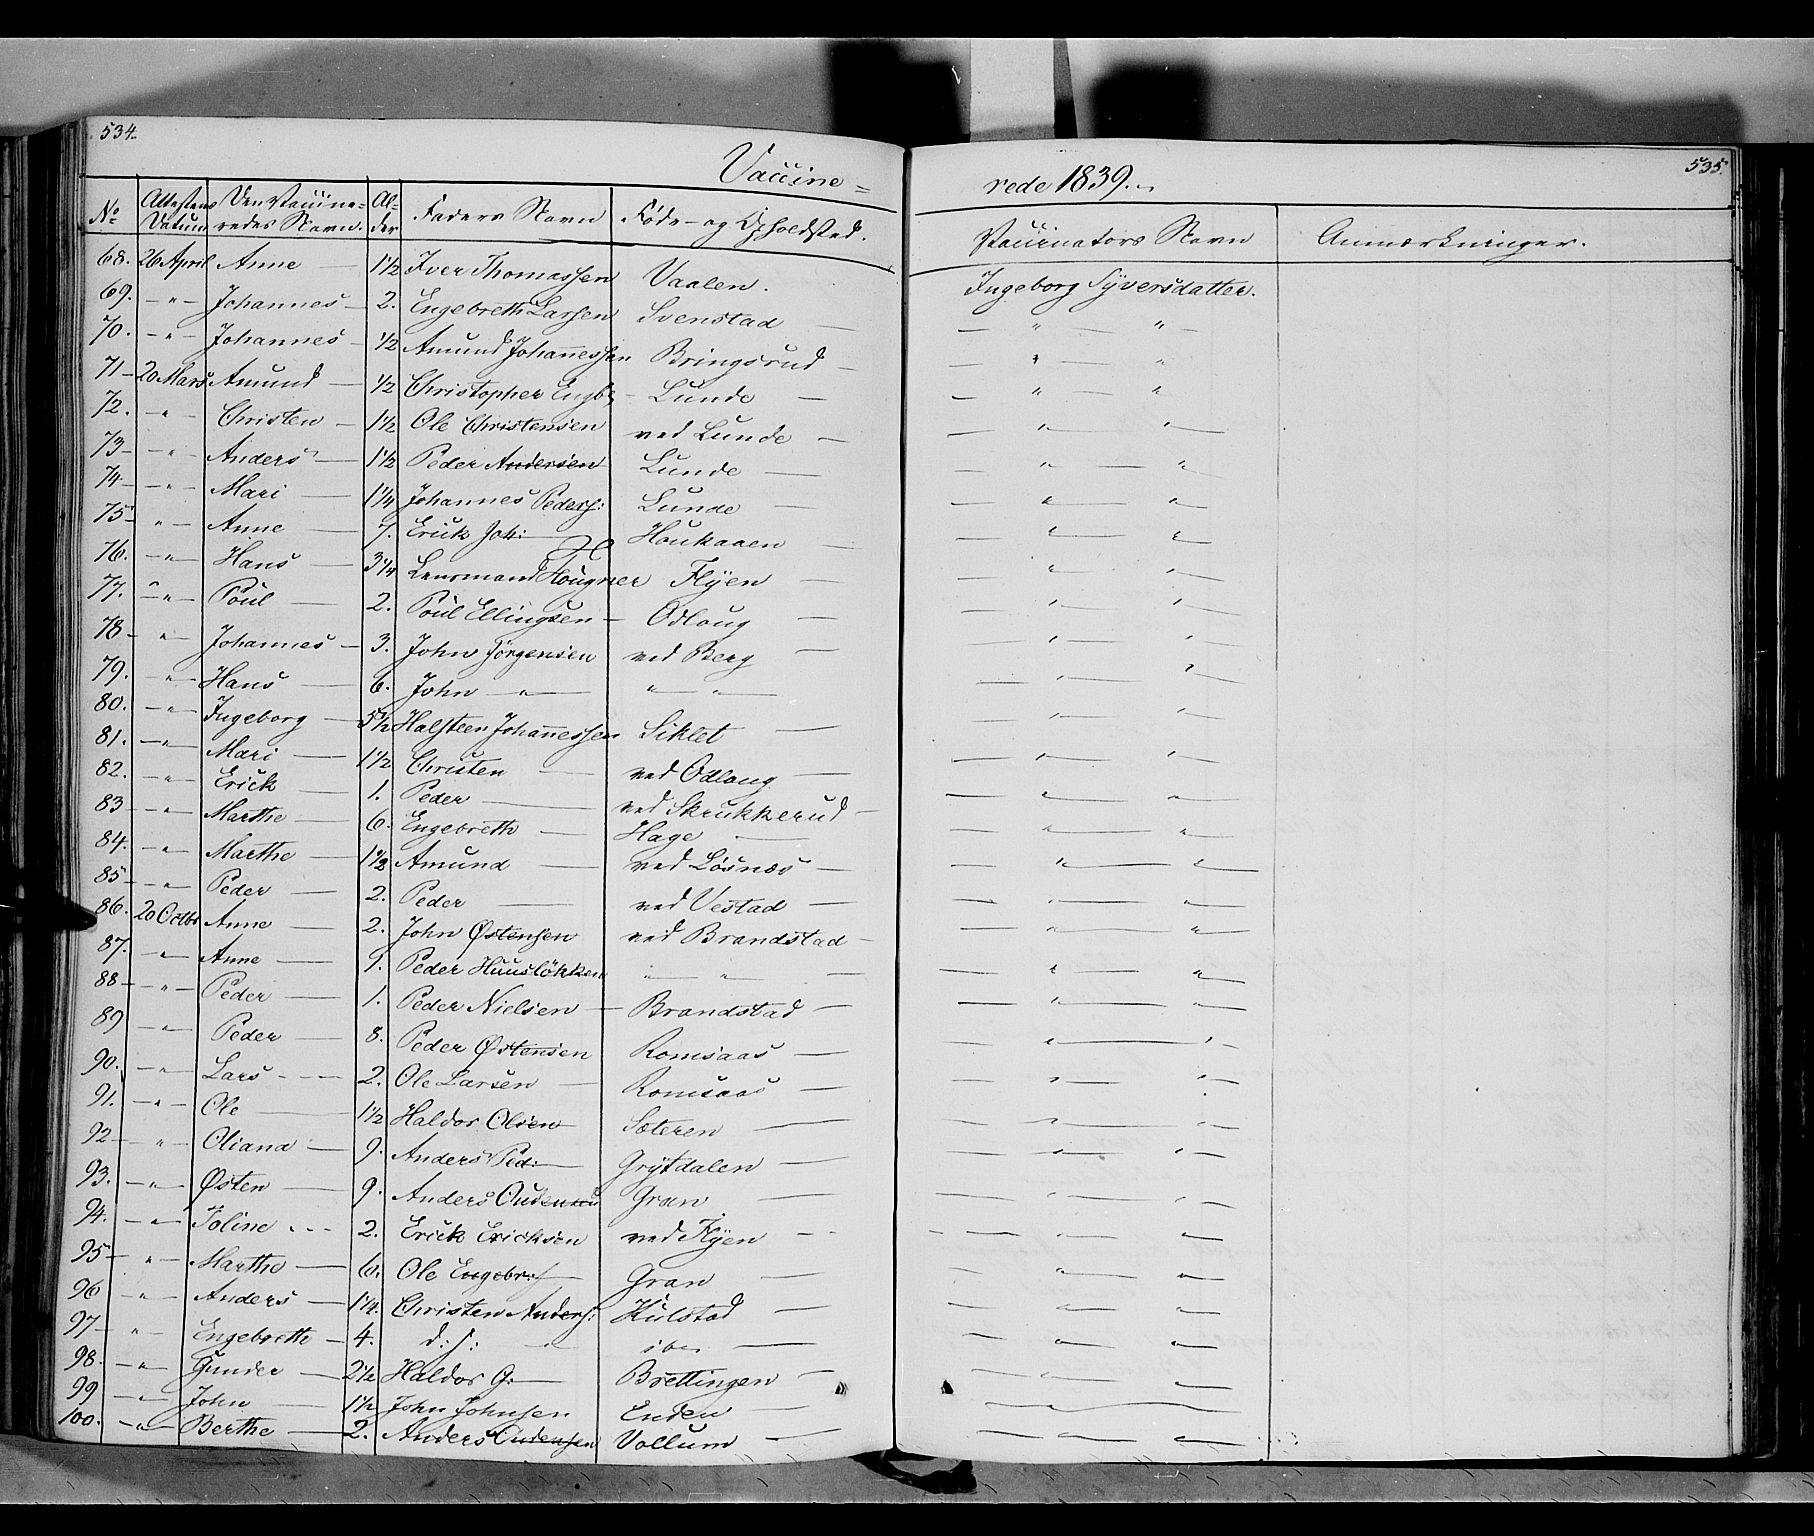 534.
535.
Vaccine=
rede 1839.
No Attestens Datum Den Vaccineredes Navn. Alder Faders Navn Føde- og Opholdsted. Vaccinators Navn Anmærkninger.
68. 26 April Anne — 1½ Iver Thomassen Vaalen. Ingeborg Syversdatter.
69. — " — Johannes — 2. Engebreth Larsen Svenstad — — " — " —
70. — " — Johannes — ½ Amund Johannessen Bringsrud — — " — "
71 — 20 Mars Amund — ½ Christopher Engb. — Lunde — — " — "
72. — " — Christen — 1½ Ole Christensen ved Lunde — — " — " —
73 — — " — Anders — 1½ Peder Andersen Lunde — — " — "
74 — — " — Mari — 1¼ Johannes Peders: Lunde — — " — "
75 — " — Anne — 7. Erick Joh: — Houkaaen — — " — "
76. — " — Hans — 3¼ Lensmand Hougner Flyen — — " — "
77. — " — Poul — 2. Poul Ellingsen — Odloug — — " — "
78 — " — Johannes — 3. John Jörgensen ved Berg — — " — "
79. — " — Hans — 6. John — " — " — " — — " — "
80. — " — Ingeborg — 5½ Halsteen Johannessen Siklet — — " — "
81. — " — Mari — 1½ Christen — ved Odloug — — " — "
82. — " — Erick — 1. Peder — ved Skrukkerud — — " — "
83 — — " — Marthe — 6. Engebreth — Hage — — " — "
84. — " — Marthe — 1½ Amund — ved Løsnæs — — " — "
85 — — " — Peder — 2. Peder — ved Vestad — — " — "
86. 20 Octbr Anne — 2. John Østensen ved Brandstad — — " — "
87. — " — Anne — 9. Peder Huuslökken — " — — " — "
88 — — " — Peder — 1. Peder Nielsen — Brandstad — — " — "
89 — " — Peder — 8. Peder Østensen Romsaas — — " — "
90. — " — Lars — 2. Ole Larsen — Romsaas — — " — "
91. — " — Ole — 1½ Haldor Olsen Sæteren — — " — "
92 — — " — Oliana — 9. Anders Ped: — Grytdalen — — " — "
93. — " — Østen — 9. Anders Gran — — " — "
94. — " — Toline — 2. Erick Ericksen ved Flyen — — " — "
95 — — " — Marthe — 6. Ole Engebr: — Gran — — " — "
96 — " — Anders — 1¼. Christen Anders: Hulstad — — " — "
97 — — " — Engebrethe — 4. d: s: — — — " — "
98. — " — Gunder — 2½ Haldor G: — Brettingen — — " — "
99 — " — John — 1½ John Johnsen Enden — — " — "
100. — " — Berthe — 2. Anders Oudensen Vollum — — " — "